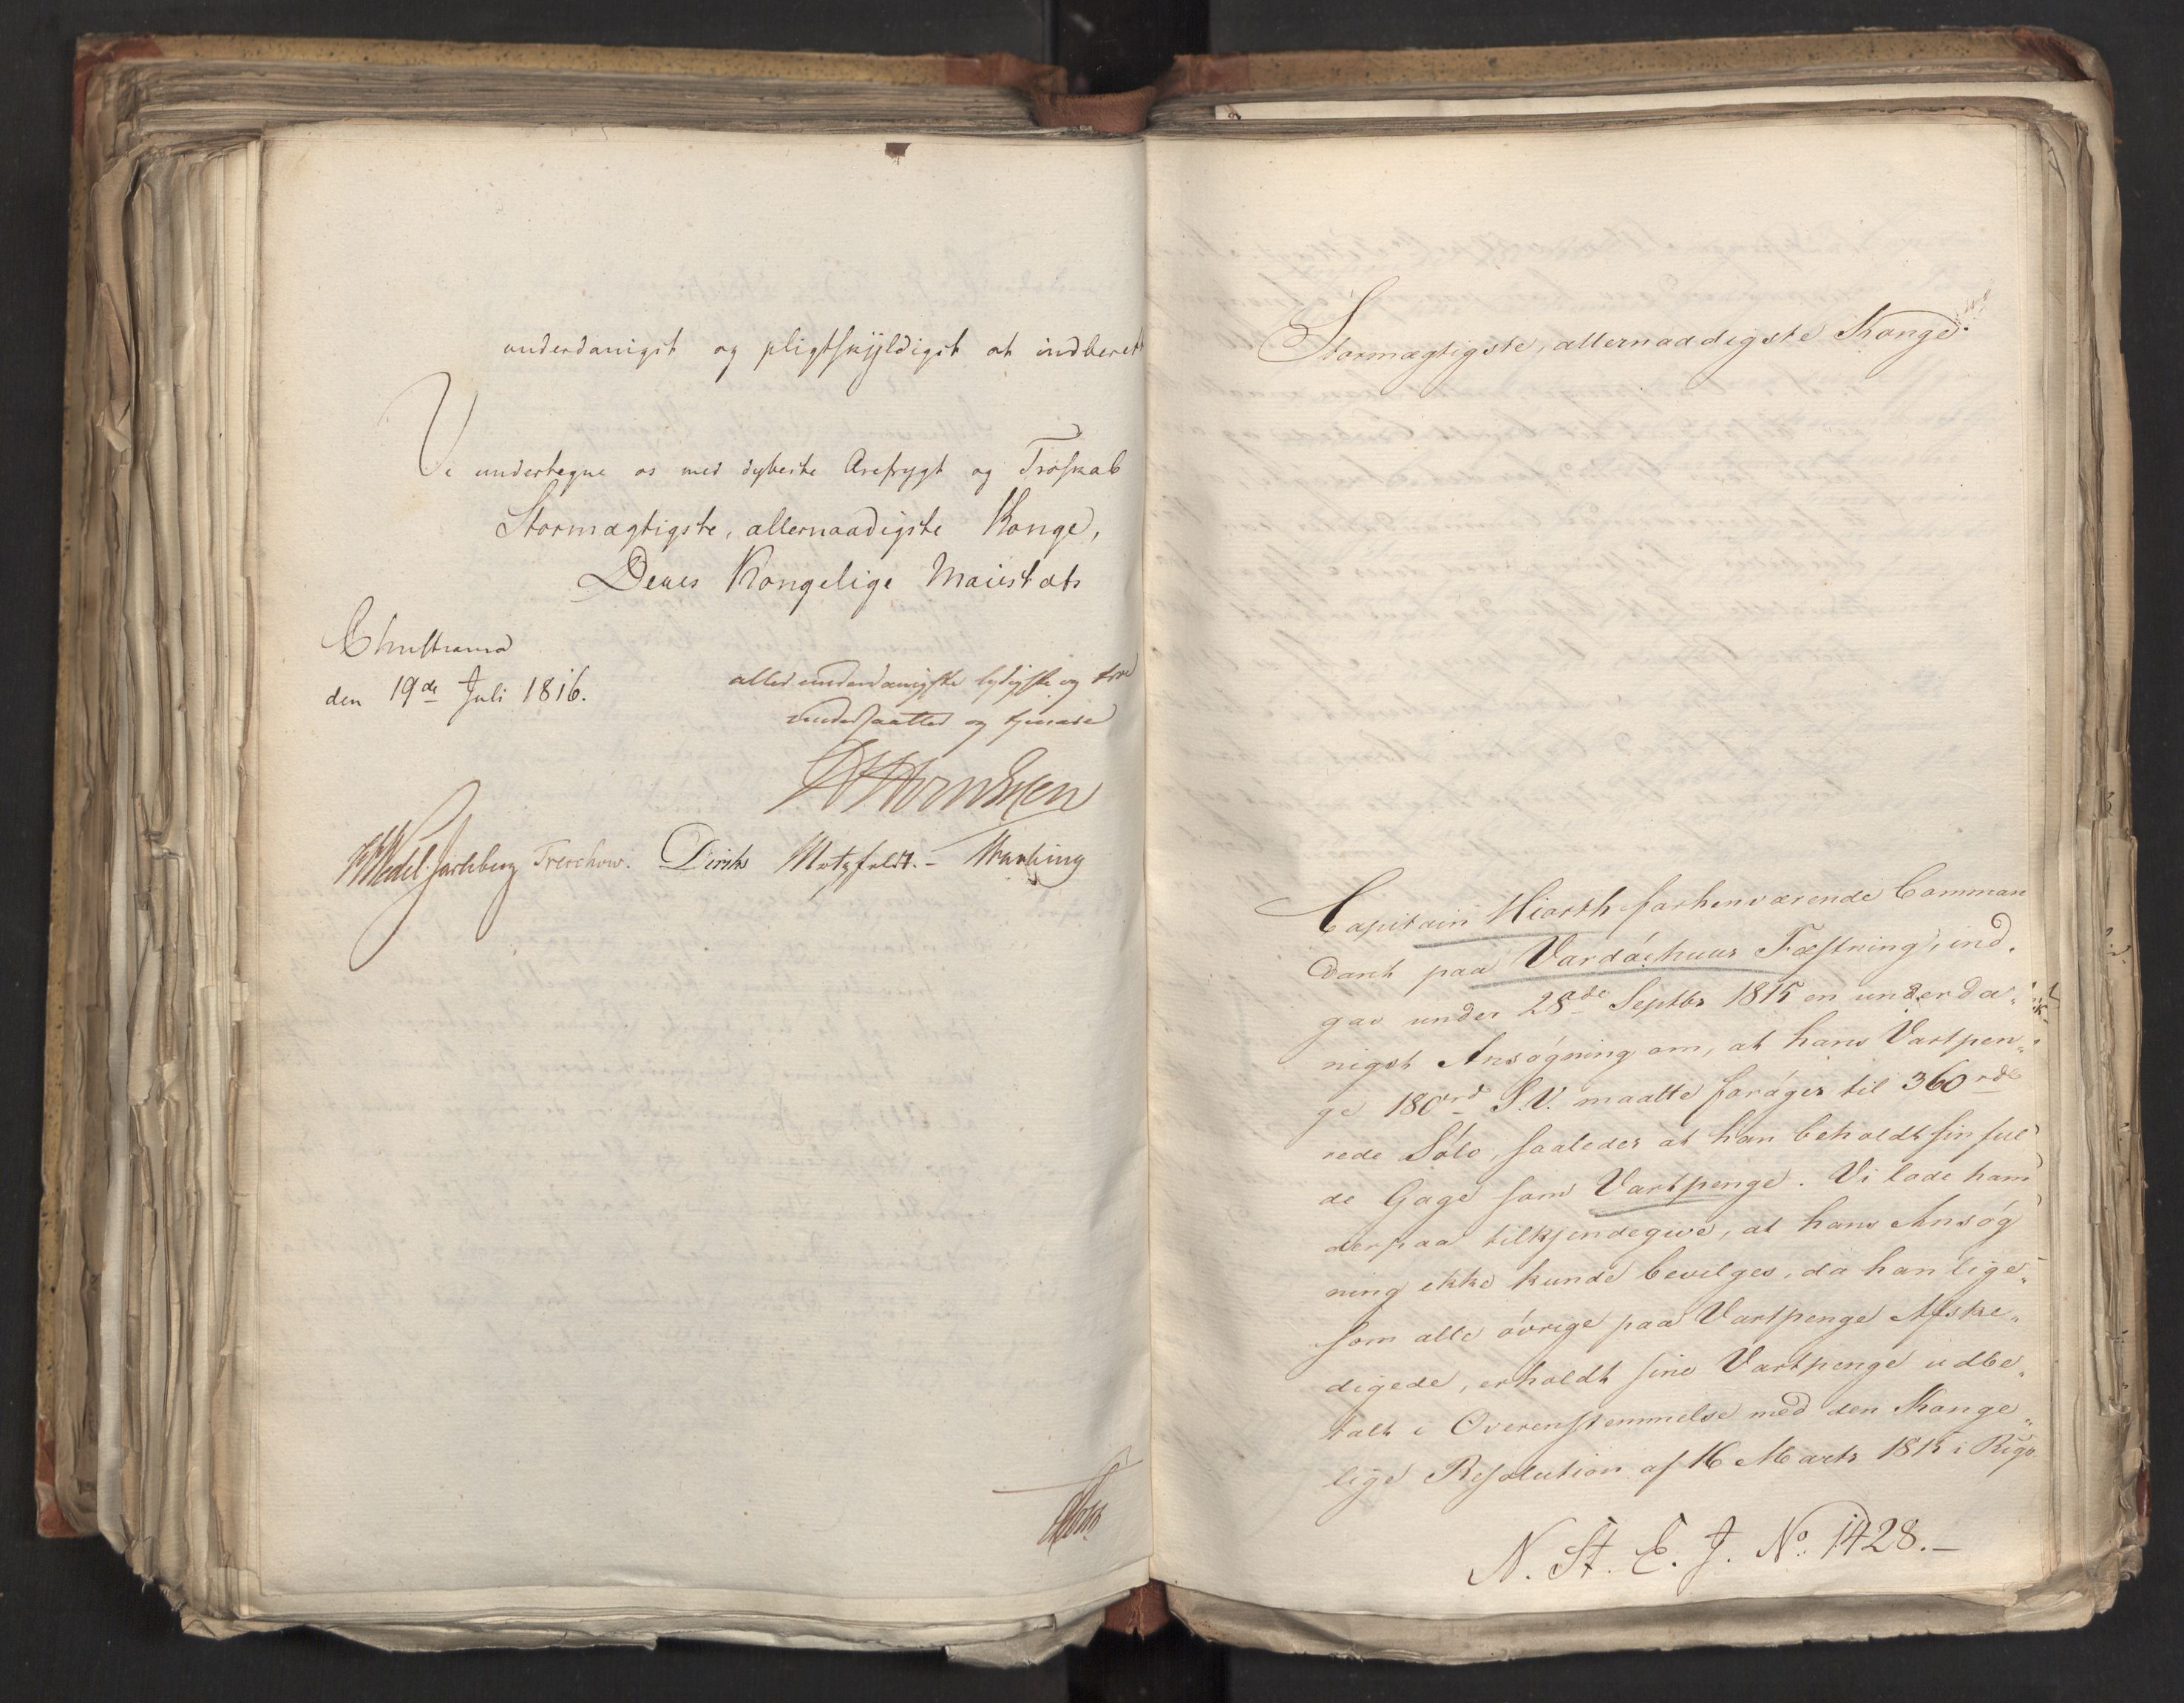 underdanigst og pligtskyldigst at indberet
Vi undertegne os med dybeste Ærefrygt og Troskab
Stormægtigste, allernaadigste Konge,
Deres Kongelige Maiestæts
Christiania
den 19de Juli 1816.
allerunderdanigste lydigste og troe
undersaatter og tjenere
Wedel Jarlsberg Treschow. Diriks Motzfeldt. -
Stormægtigste, allernaadigste Konge.
Capitain Hiorth forhenværende Comman
dant paa Vardøehuus Fæstning, ind.
gav under 28de Septbr 1815 en underda„
nigst Ansøgning om, at hans Vartpen„
ge 180rd S.V. maatte forøges til 360rd
rede Sølv, saaledes at han beholdt sin ful
de Gage som Vartpenge. Vi lode ham
derpaa tilkjendegive, at hans Ansøg
ning ikke kunde bevilges, da han lige„
som alle øvrige paa Vartpenge Afske„
digede, erholdt sine Vartpenge udbe„
talt i Overensstemmelse med den Konge„
lige Resolution af 16 Marts 1815 i Rigs
N. St. E. J. No. 1428.-